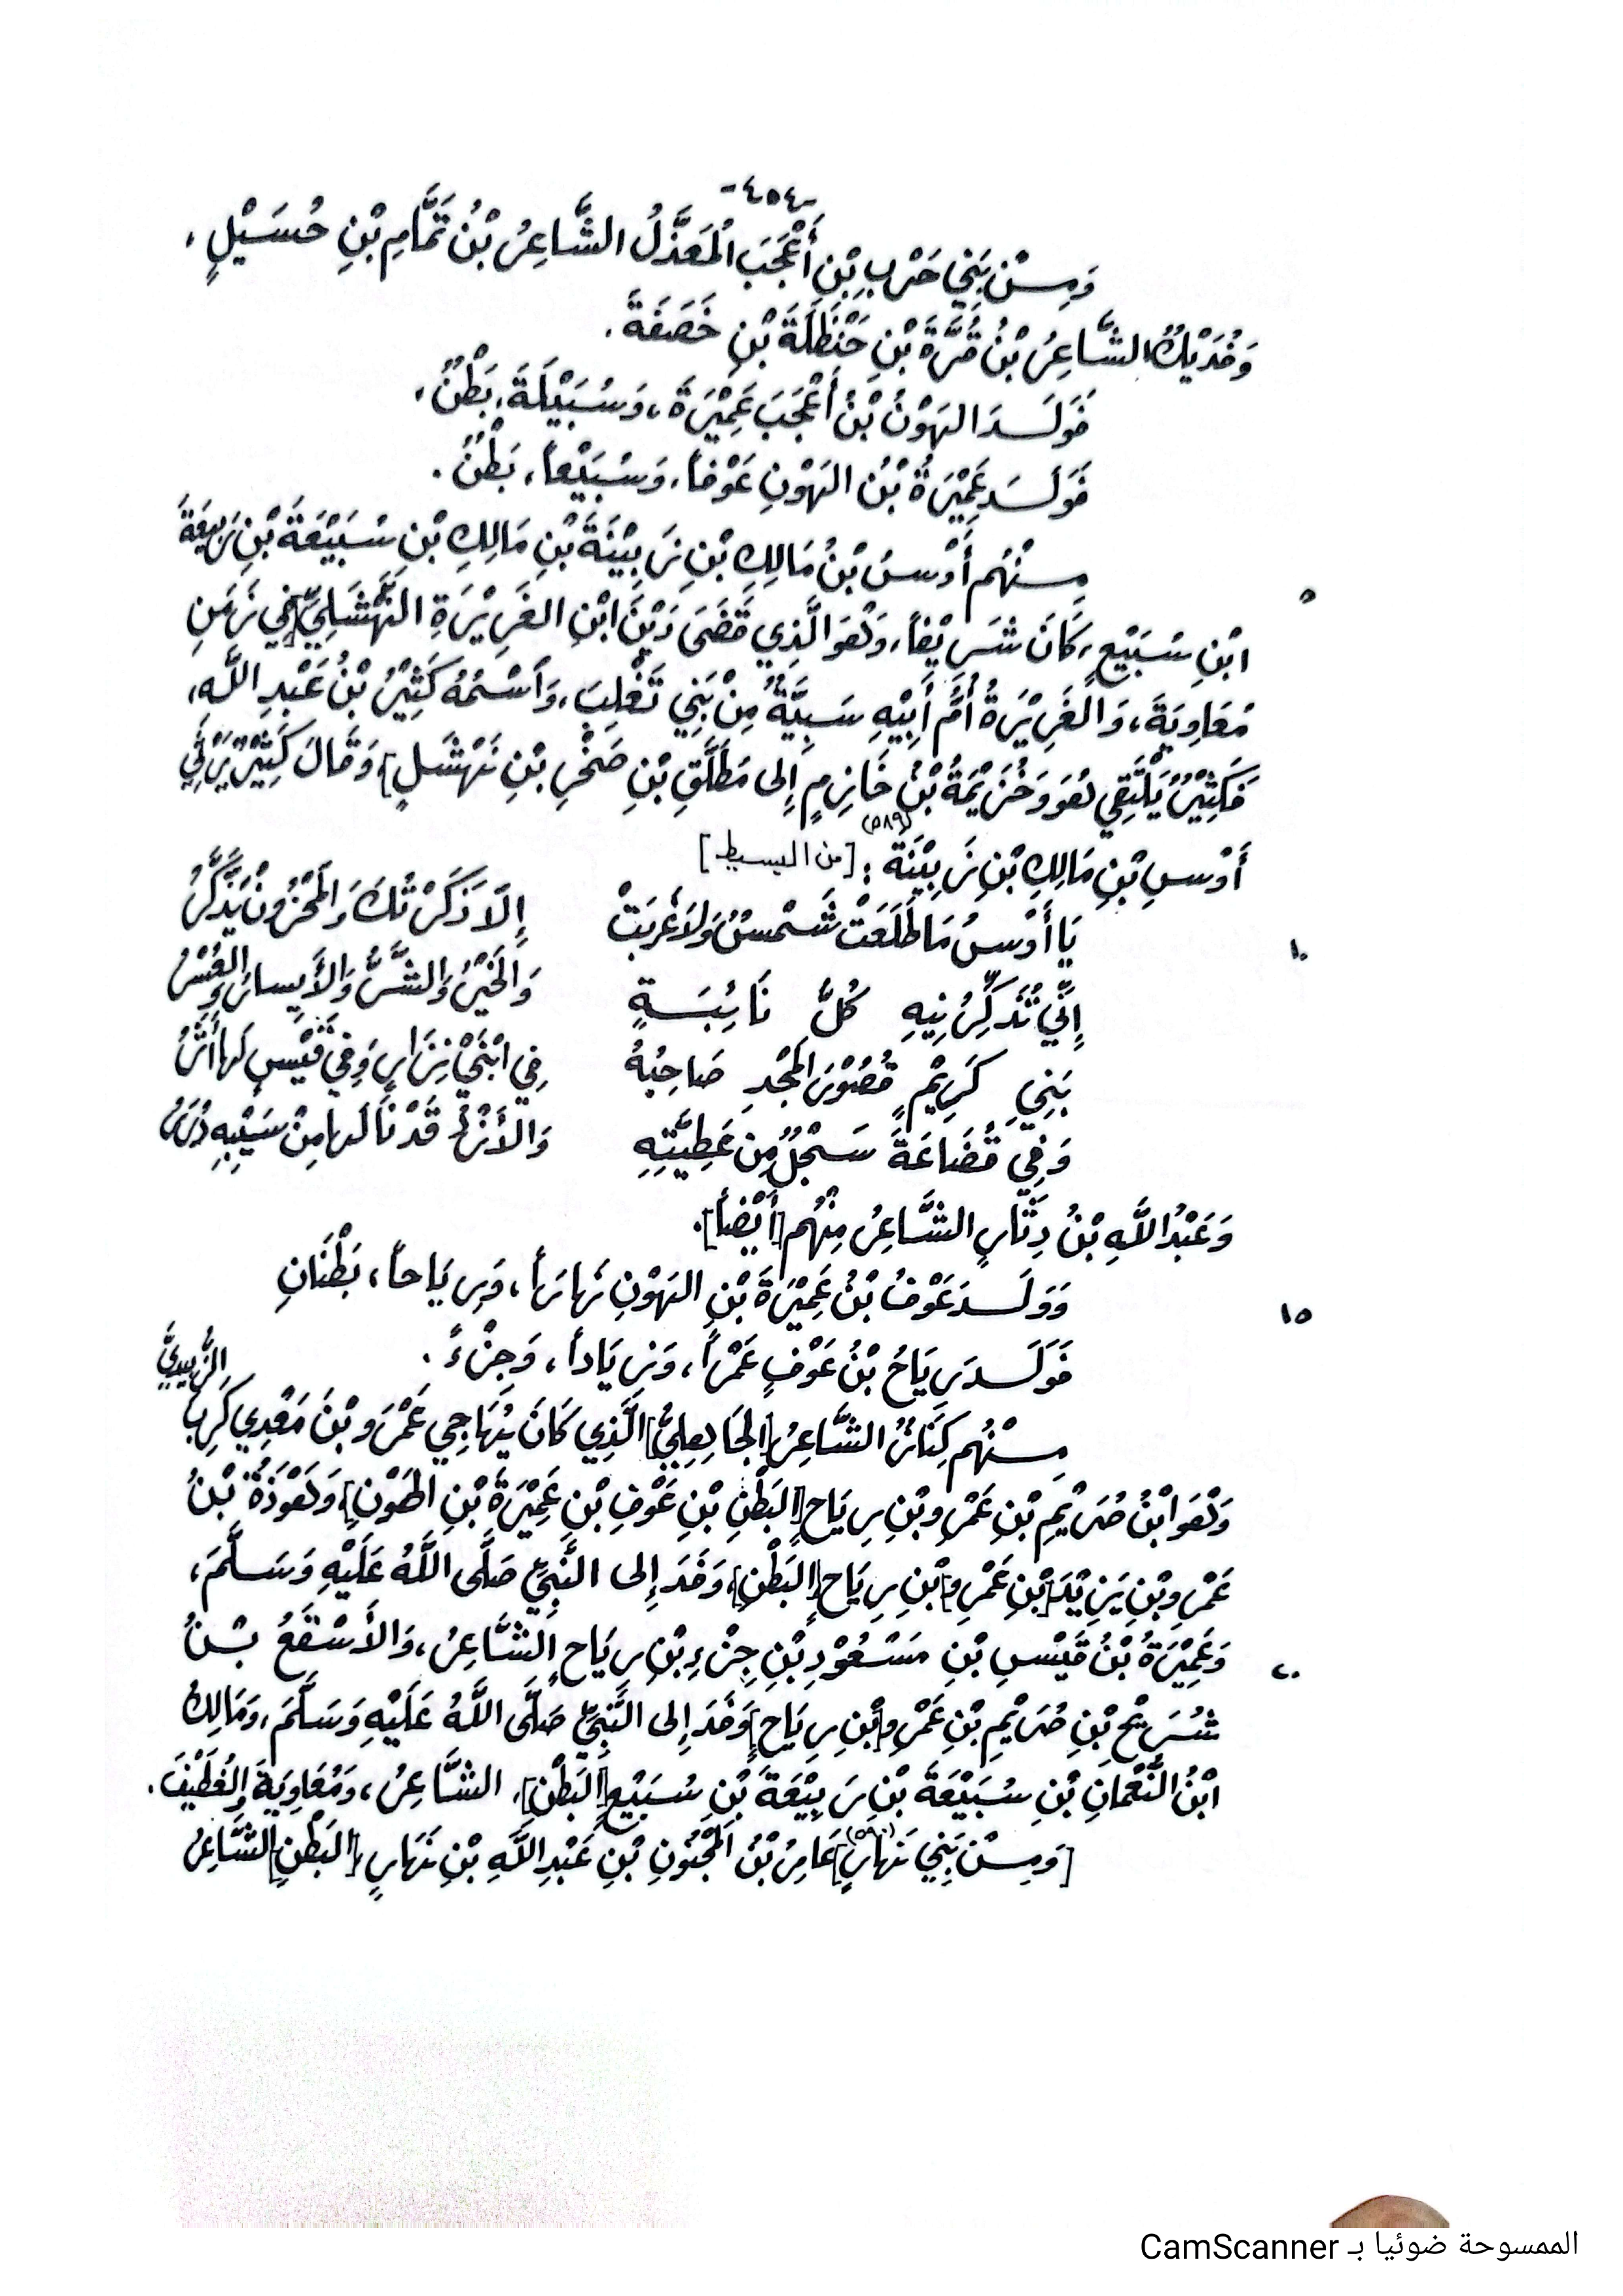 -٤٥٤-
وَمِـنْ بَنِي حَرْبِ بْنِ أَعْجَبَ الْمَعَذَّلُ الشَّاعِرُ بْنُ تَمَّامِ بْنِ حُسَيْلٍ،
وَفُدَيْكٌ الشَّاعِرُ بْنُ قُرَّةَ بْنِ حَنْظَلَةَ بْنِ خَصَفَةَ.
فَوَلَـدَ الهَوْنُ بْنُ أَعْجَبَ عَمِيْرَةَ، وَسُبَيْلَةَ، بَطْنٌ،
فَوَلَـدَ عَمِيْرَةُ بْنُ الهَوْنِ عَوْفاً، وَسُبَيْعاً، بَطْنٌ.
٥ مِـنْهُم أَوْسُ بْنُ مَالِكِ بْنِ زَبِيْنَةَ بْنِ مَالِكِ بْنِ سُبَيْعَةَ بْنِ رَبِيْعَةَ
ابْنِ سُبَيْعٍ، كَانَ شَرِيْفاً، وَهُوَ الَّذِي قَضَى دَيْنَ ابْنِ الغَرِيْرَةِ النَّهْشَلِيِّ [في زَمَنِ
مُعَاوِيَةَ، وَالغَرِيْرَةُ أُمُّ أَبِيْهِ سَبِيَّةٌ مِنْ بَنِي تَغْلِبَ، وَاسْمُهُ كَثِيْرُ بْنُ عَبْدِ اللَّهِ،
فَكَثِيْرٌ يَلْتَقِي هُوَ وَخُزَيْمَةُ بْنُ خَازِمٍ إِلى مَطَلَّقِ بْنِ صَخْرِ بْنِ نَهْشَلٍ]، وَقَالَ كَثِيْرٌ يَرْثِي
أَوْسِ بْنِ مَالِكِ بْنِ زَبِيْنَةَ (٥٨٩): [من البسيط]
١٠ يَا أَوْسُ مَا طَلَعَتْ شَمْسٌ وَلاَ غَرَبَتْ إِلاَّ ذَكَرْتُكَ وَالمَحْزُونُ يَذَّكَّرُ
إِنِّي تُذَكِّرُنِيهِ كُلُّ نَائِبَـةٍ وَالخَيْرُ وَالشَّرُّ وَالأَيسارُ وَالعُسُرُ
بَنِي كَرِيْمٍ قُصُوْرَ المَجْدِ صَاحِبُهُ فِي ابْنَيْ نِزَارٍ وَفِي قَيْسٍ لَهَا أَثَرُ
وَفِي قُضَاعَةَ سَجْلٌ مِن عَطِيَّتِهِ وَالأَزْدُ قَدْ نَالَها مِنْ سَيْبِهِ دُرَرُ
وَعَبْدُ اللَّهِ بْنُ دِثَّارٍ الشَّاعِرُ مِنْهُم [أَيْضاً].
١٥ وَوَلَـدَ عَوْفُ بْنُ عَمِيْرَةَ بْنِ الهَوْنِ نَهاراً، وَرِيَاحاً، بَطْنَانِ
فَوَلَـدَ رِيَاحُ بْنُ عَوْفٍ عَمْراً، وَزِيَاداً، وَجِزْءً.
مِـنْهُم كِنَازُ الشَّاعِرُ [الجَابِعِلِيُّ] الَّذِي كَانَ يُهَاجِي عَمْرَو بْنَ مَعْدِي كَرِبَ الزُّبيديَّ
وَهُوَ ابْنُ صُرَيْمِ بْنِ عَمْرِو بْنِ رِيَاحٍ [البَطْنِ بْنِ عَوْفِ بْنِ عَمِيْرَةَ بْنِ الهَوْنِ]، وَهَوْذَةُ بْنُ
عَمْرِو بْنِ يَزِيْدَ [بْنِ عَمْرِو] بْنِ رِيَاحٍ [البَطْنِ]، وَفَدَ إِلى النَّبِيِّ صَلَّى اللَّهُ عَلَيْهِ وَسَلَّمَ،
٢٠ وَعَمِيْرَةُ بْنُ قَيْسِ بْنِ مَسْعُوْدِ بْنِ جِزْءِ بْنِ رِيَاحٍ الشَّاعِرُ، وَالأَسْقَعُ بْـنُ
شُرَيْحِ بْنِ صُرَيْمِ بْنِ عَمْرِو [بْنِ رِيَاحٍ] وَفَدَ إِلى النَّبِيِّ صَلَّى اللَّهُ عَلَيْهِ وَسَلَّمَ، وَمَالِكُ
ابْنُ النُّعْمَانِ بْنِ سُبَيْعَةَ بْنِ رَبِيْعَةَ بْنِ سُبَيْعٍ [البَطْنِ]، الشَّاعِرُ، وَمُعَاوِيَةُ الغُطَيْفَ.
[وَمِـنْ بَنِي نَهارٍ] (٥٩٠) عَامِرُ بْنُ المَجْنُونِ بْنِ عَبْدِ اللَّهِ بْنِ نَهَارٍ [البَطْنِ] الشَّاعِرُ
الممسوحة ضوئيا بـ CamScanner